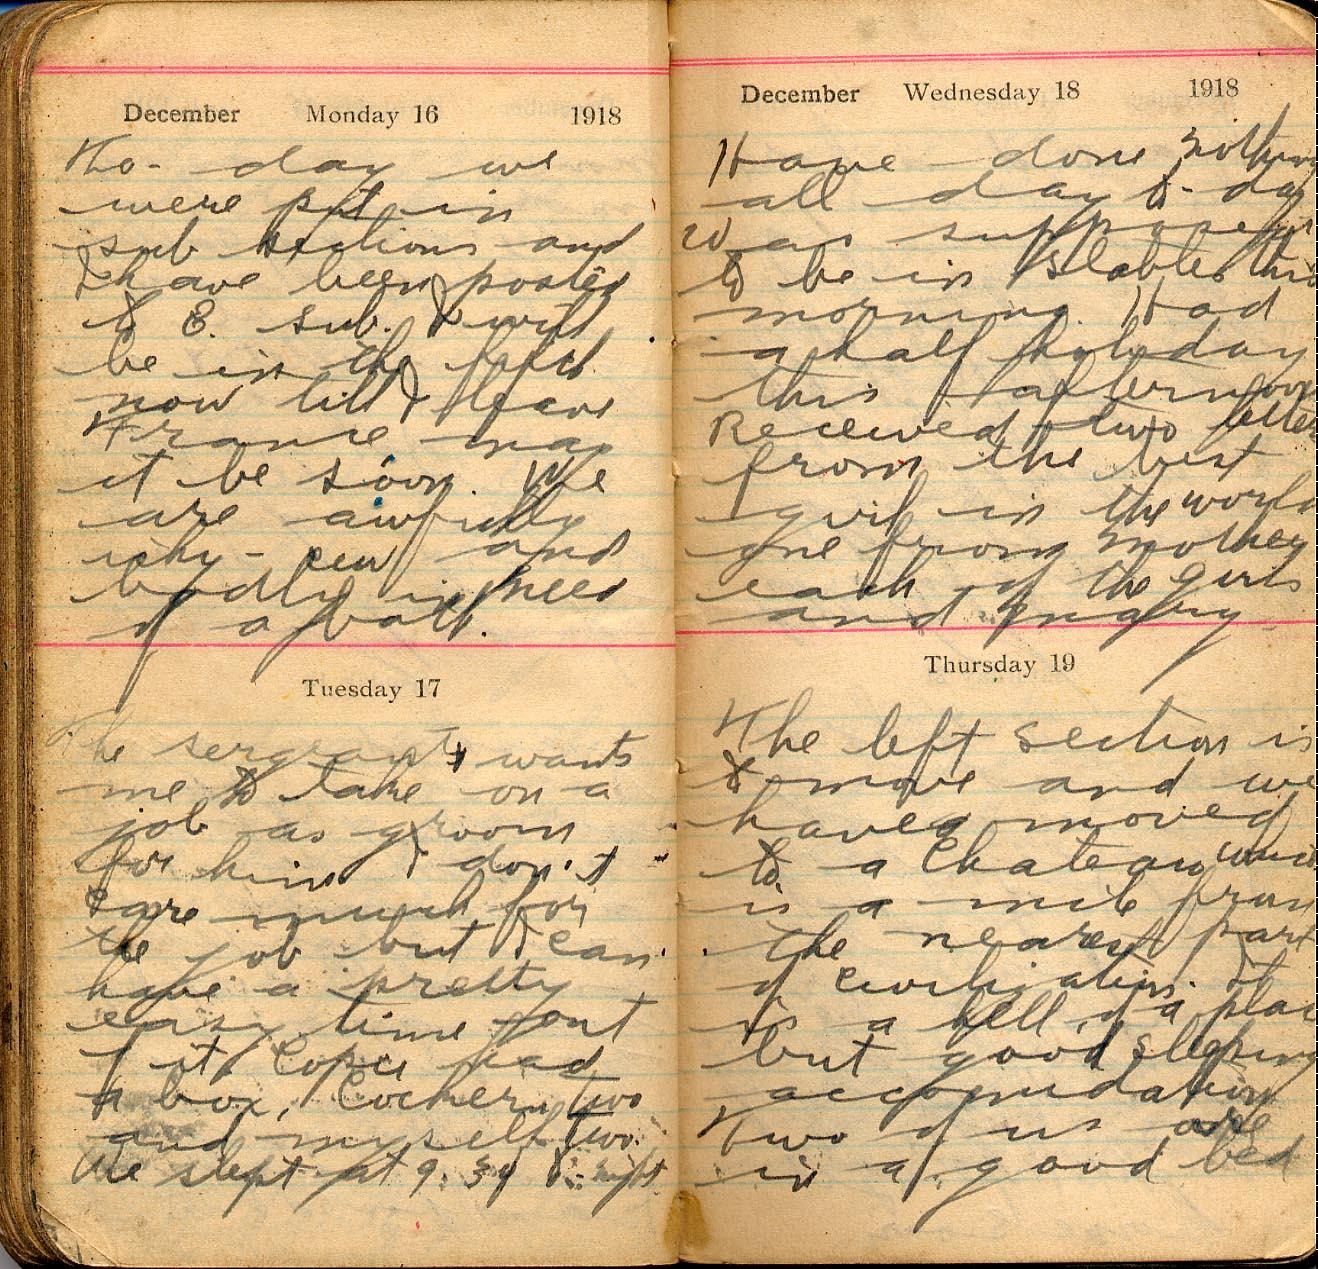 December Monday 16 1918
To-day we
were put in
sub sections and
I have been posted
to E. sub. I will
be in the
now till I leave
France may
it be soon. We
are awfully
ichy - and
badly in need
of a bath.
Tuesday 17
The sergeant wants
me to take on a
job as groom
for him I don't
care much for
the job but I can
have a pretty
easy time out
of it. had
a box, two
and myself two.
We slept at 9.30 to-night
December Wednesday 18 1918
Have done nothing
all day to-day
was supposed
to be in stables this
morning. Had
a half holiday
this afternoon
Received two letters
from the best
girl in the world
one from Mother
each of the girls
and
Thursday 19
The left section is
to move and we
have moved
to a Chateau
is a mile from
the nearest part
of civilization. It
is a hell of a place
but good sleeping
accomidation
Two of us are
in a good bed